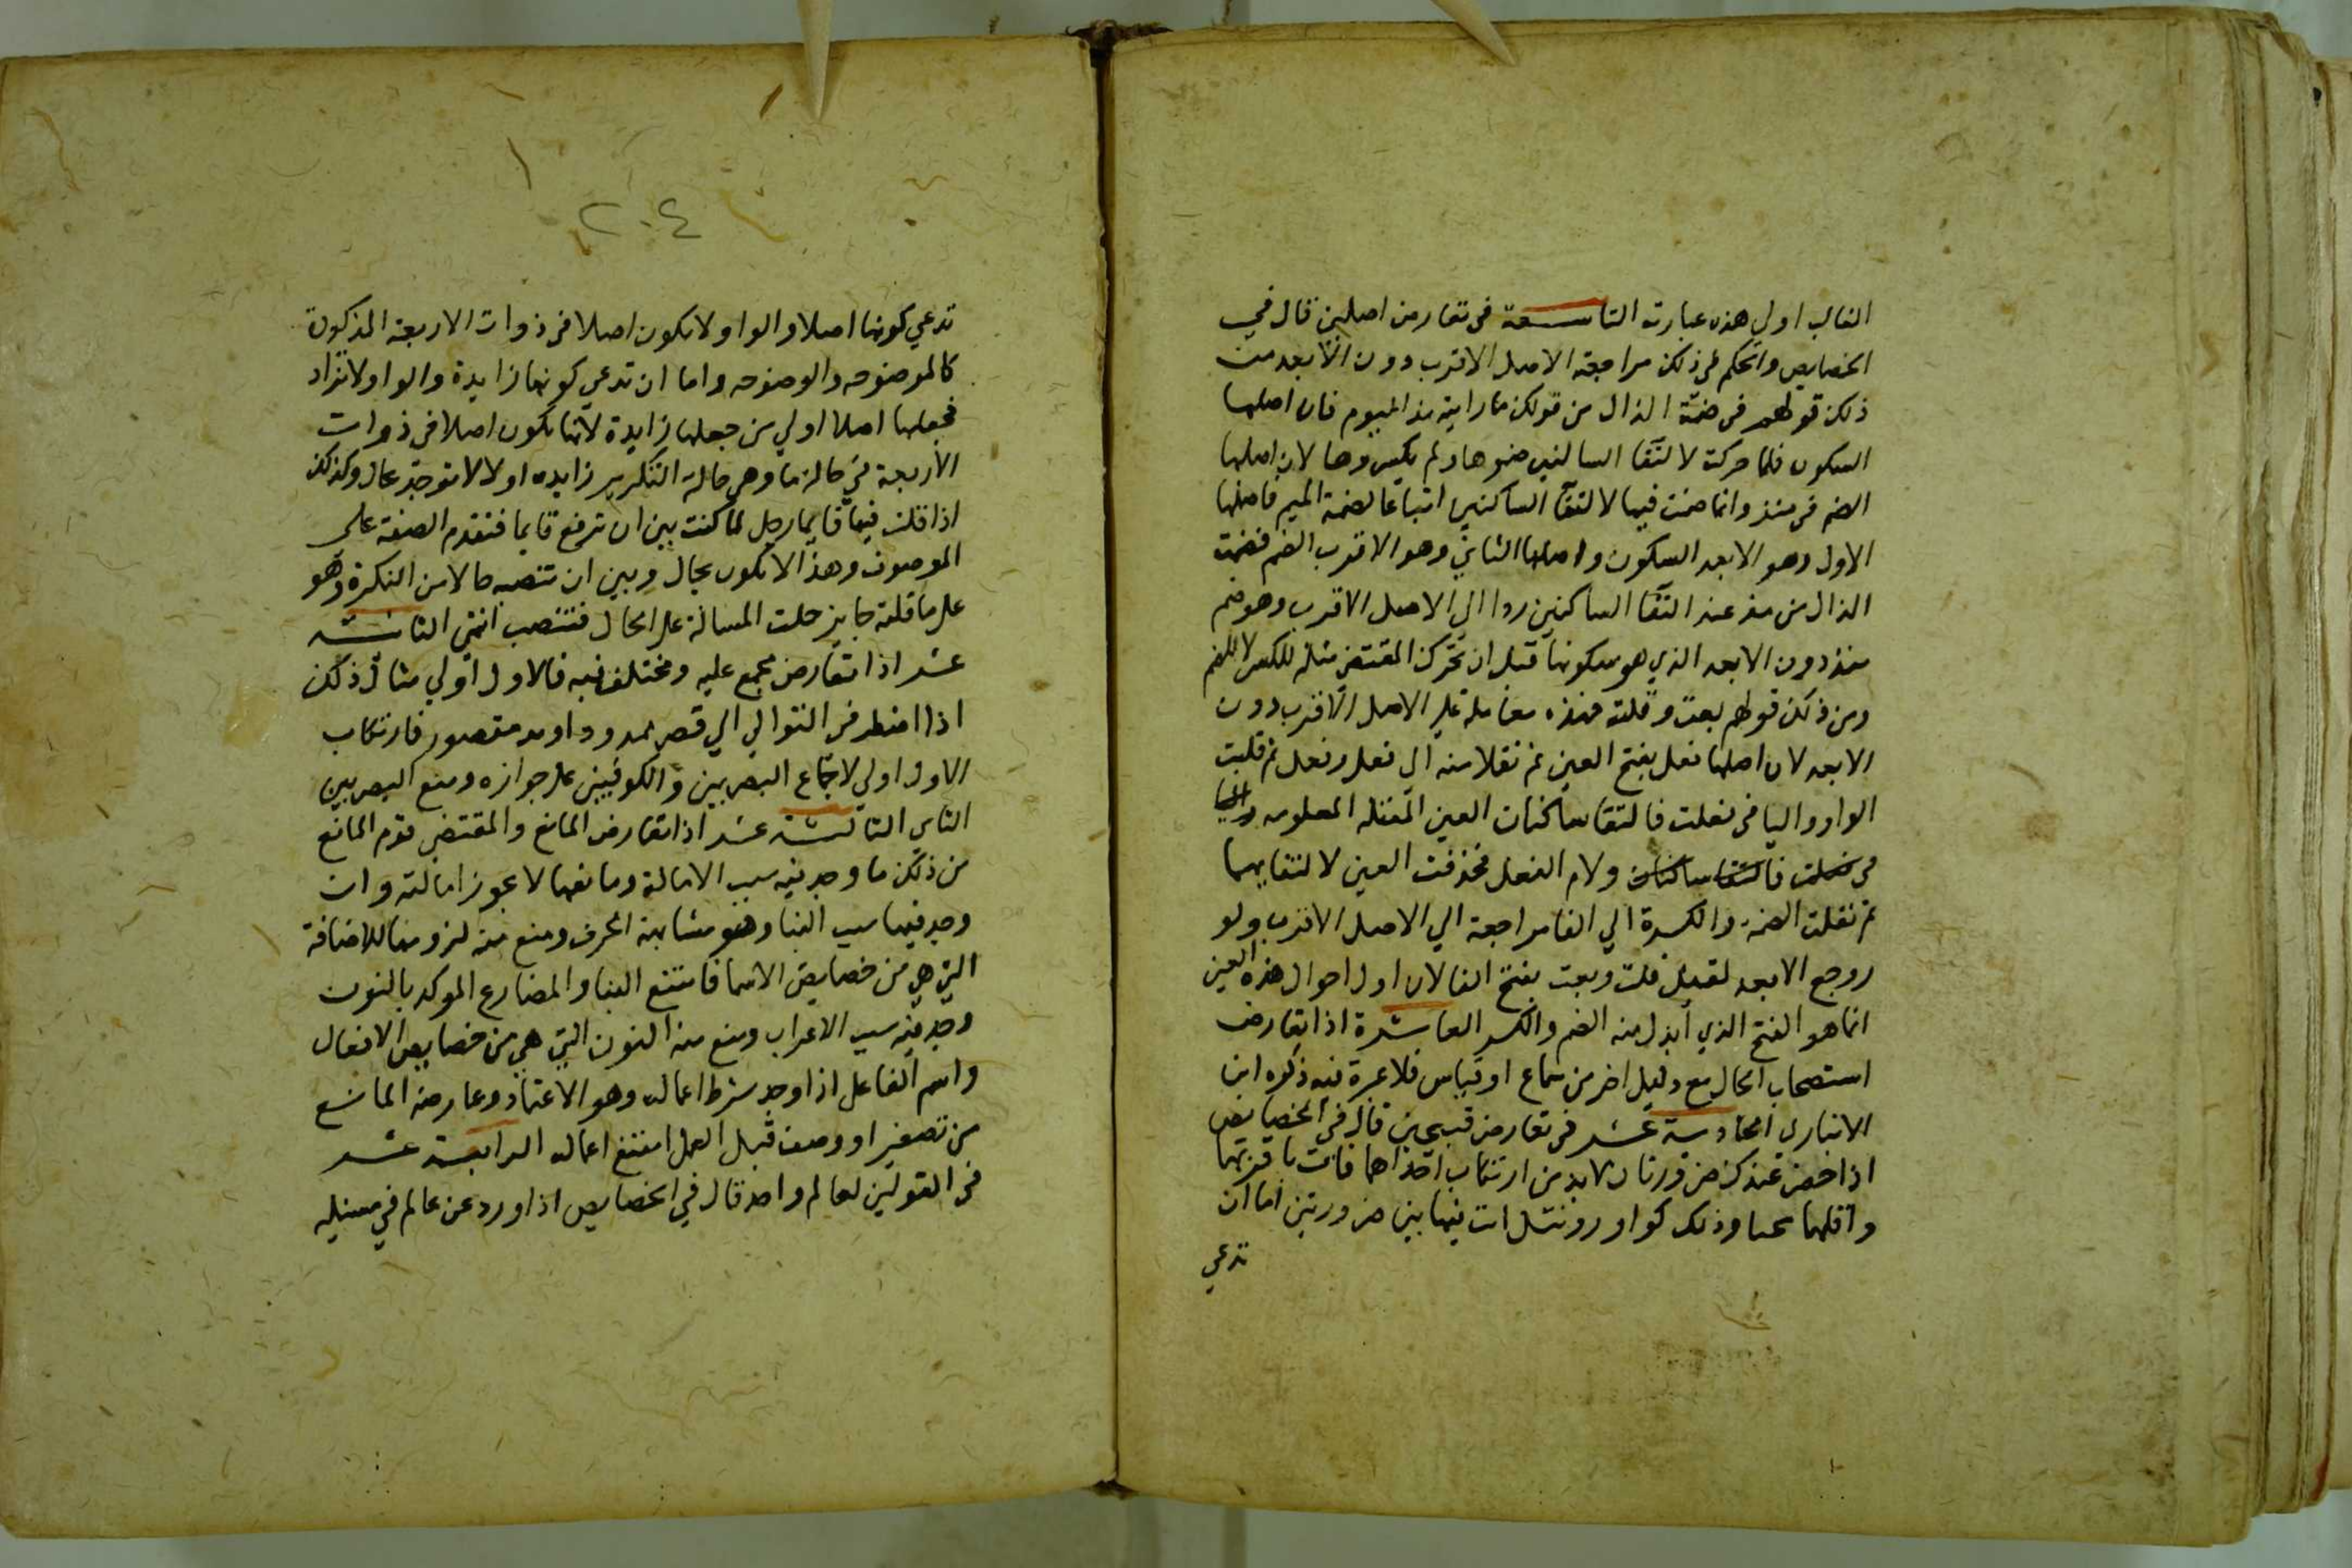 الغالب اولي هذه عبارته التاسعة في تعارض اصلين قال في
الخصايص والحكم في ذلك مراجعة الاصل الاقرب دون الابعد من
ذلك قولهم في ضمة الذال من قولك ما رايته مذ اليوم فان اصلها
السكون فلما حركت لالتقا الساكنين ضموها ولم يكسروها لان اصلها
الضم في منذ وانما ضمت فيها لالتقا الساكنين اتباعا لضمة الميم فاصلها
الاول وهو الابعد السكون واصلها الثاني وهو الاقرب الضم فضمت
الذال من مذ عند التقا الساكنين ردا الي الاصل الاقرب وهو ضم
منذ دون الابعد الذي هو سكونها قبل ان تحرك المقتضي مثله للكسر لا للضم
ومن ذلك قولهم بعت وقلت فهذه معاملة علي الاصل الاقرب دون
الابعد لان اصلها فعل بفتح العين ثم نقلا منه الي فعل وفعل ثم قلبت
الواو واليا في فعلت فالتقا ساكنان العين المعتلة المعلومه واليا
في فعلت فالتقا ساكنان ولام الفعل فحذفت العين لالتقايهما
ثم نقلت الضمة والكسرة الي الفا مراجعة الي الاصل الاقرب ولو
روجع الابعد لقيل قلت وبعت بفتح الفا لان اول احوال هذه العين
انما هو الفتح الذي ابدل منه الضم والكسر العاشرة اذا تعارض
استصحاب الحال مع دليل اخر من سماع او قياس فلا عبرة فيه ذكره ابن
الانباري الحادية عشر في تعارض قبيحين قال في الخصايص
اذا حضر عندك ضرورتان لابد من ارتكاب احداهما فات باقربها
واقلها محبا وذلك كواو ورنتل انت فيها بين ضرورتين اما ان
تدعي
٢٠٤
تدعي كونها اصلا والواو لا تكون اصلا في ذوات الاربعة المذكورة
كالموصوحه والوصوحه واما ان تدعي كونها زايدة والواو لا تزاد
فجعلها اصلا اولي من جعلها زايدة لانها تكون اصلا في ذوات
الاربعة في حالة ما وهي حالة التكرير زايده اولا لا توجد بحال وكذلك
اذا قلت فيها قايما رجل لما كنت بين ان ترفع قايما فتقدم الصفة على
الموصوف وهذا لا يكون بحال وبين ان تنصبه حالا من النكرة وهو
على ما قلته جايز حلت المسالة على الحال فتنصب انتهي الثانيه
عشر اذا تعارض مجمع عليه ومختلف فيه فالاول اولي مثال ذلك
اذا اضطر في التوالي الي قصر ممدود او مد مقصور فارتكاب
الاول اولي لاجتماع البصريين والكوفيين على جوازه ومنع البصريين
الثاني الثالثة عشر اذا تعارض المانع والمقتضي قدم المانع
من ذلك ما وجد فيه سبب الامالة ومانعها لا يجوز امالته وان
وجد فيها سبب البنا وهو مشابهة الحرف ومنع منه لزومها للاضافة
التي هي من خصايص الاسما فامتنع البنا والمضارع الموكد بالنون
وجد فيه سبب الاعراب ومنع منه النون التي هي من خصايص الافعال
واسم الفاعل اذا وجد شرط اعماله وهو الاعتماد وعارضه المانع
من تصغير او وصف قبل العمل امتنع اعماله الرابعة عشر
في القولين لعالم واحد قال في الخصايص اذا ورد عن عالم في مسيلة